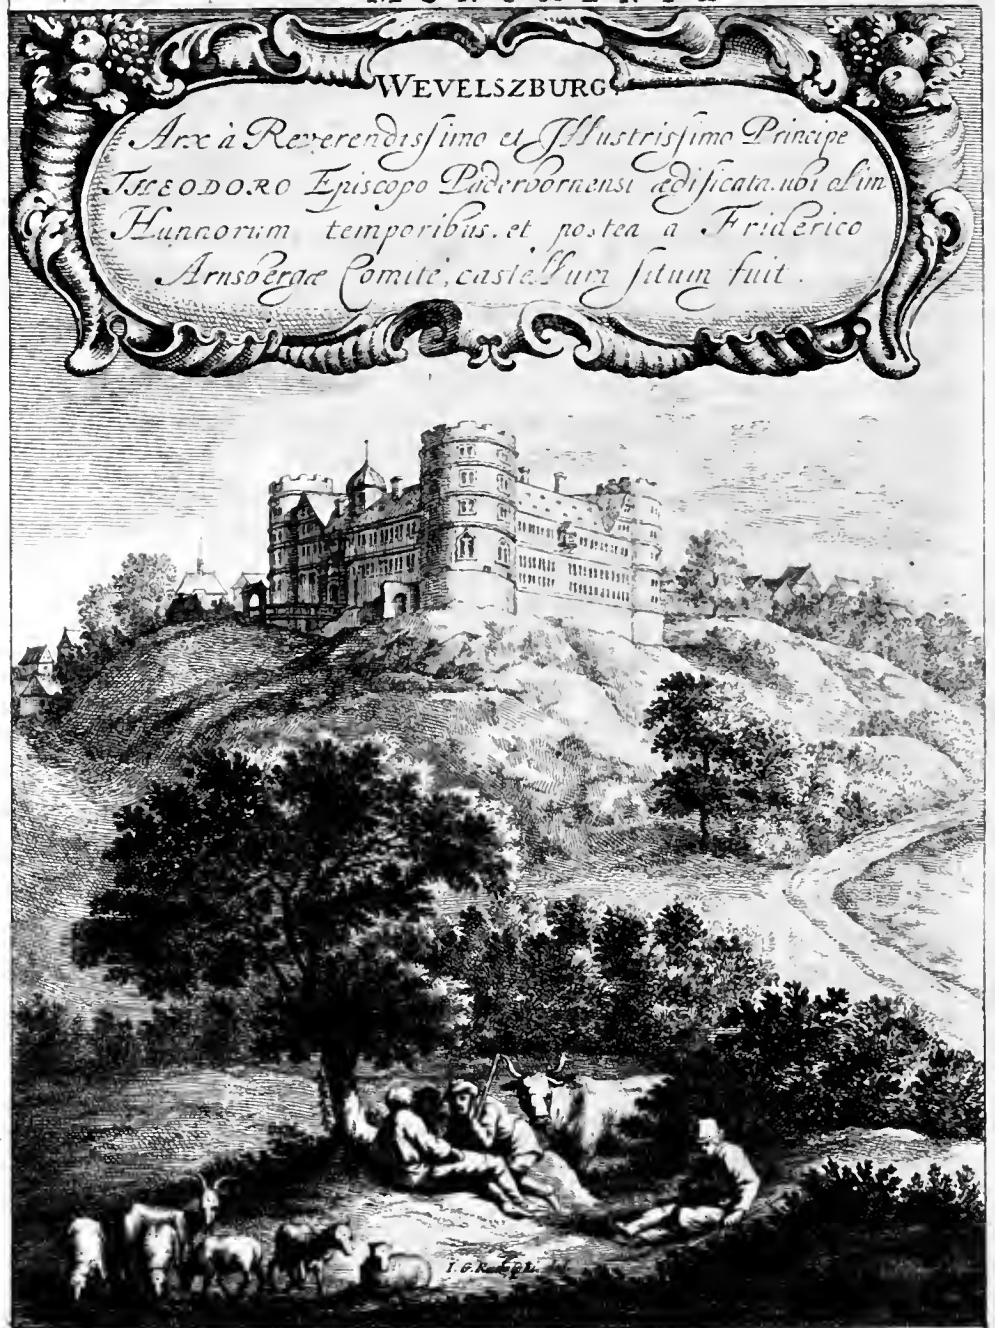 WEVELSZBURG
Arx à Reverendissimo et Illustrissimo Principe
THEODORO Episcopo Paderbornensi ædificata. ubi olim
Hunnorum temporibus. et postea a Friderico
Arnsbergæ Comite, castellum situm fuit.
I. G.